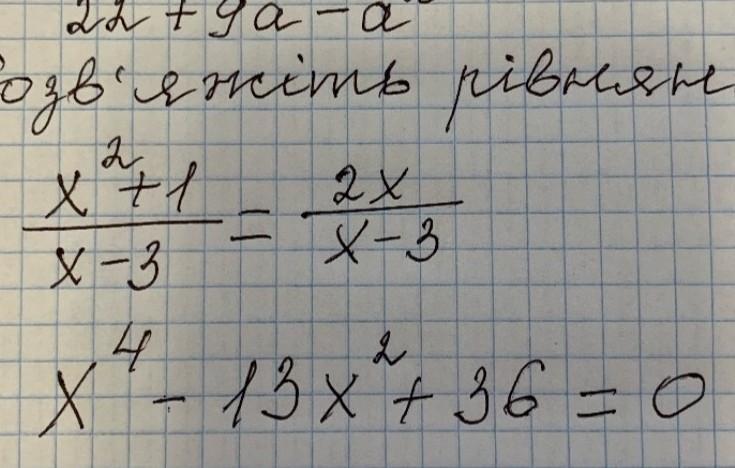 22 + 9a - a
розв'яжіть рівнян
x² + 1 / x - 3 = 2x / x - 3
x⁴ - 13x² + 36 = 0